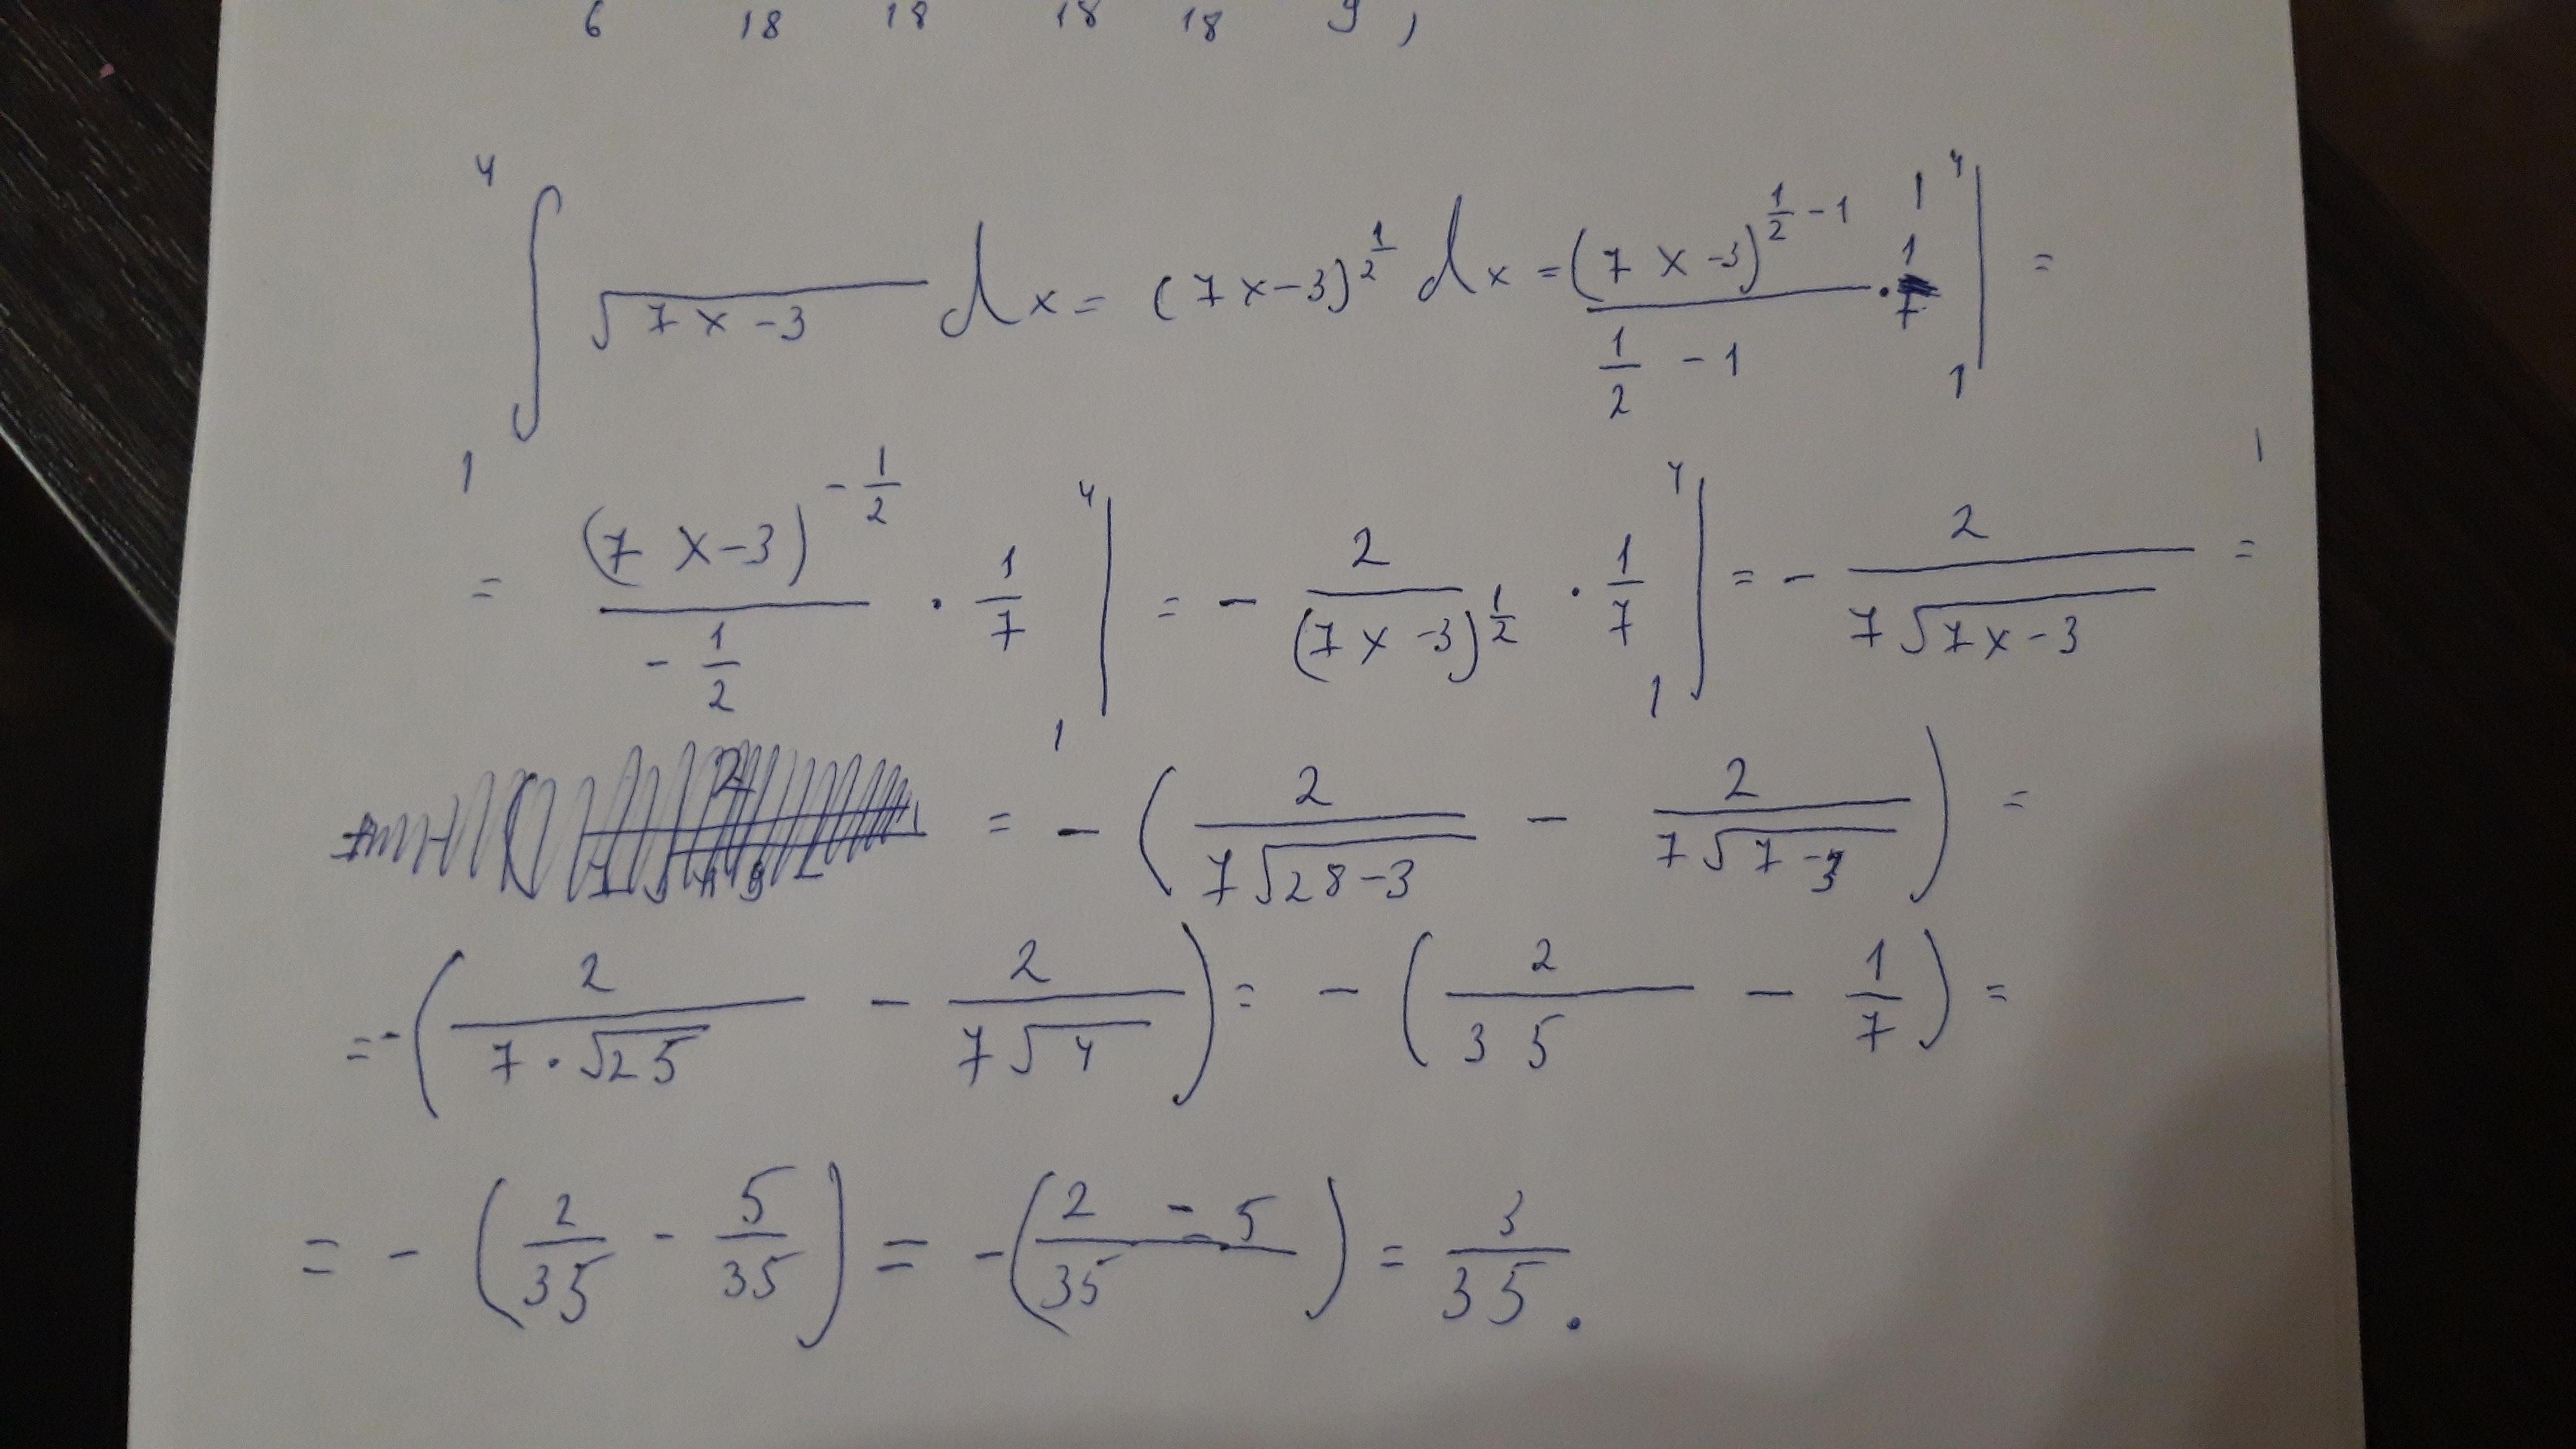 6 18 18 18 18 9 ,
∫₁⁴ √(7x-3) dx = (7x-3)^(1/2) dx = (7x-3)^(1/2 -1) / (1/2 -1) · 1/7 |₁⁴ =
= (7x-3)^(-1/2) / (-1/2) · 1/7 |₁⁴ = - 2/(7x-3)^(1/2) · 1/7 |₁⁴ = - 2/(7√(7x-3)) =
= - (2/(7√(28-3)) - 2/(7√(7-3))) =
= -(2/(7·√25) - 2/(7√4)) = - (2/35 - 1/7) =
= - (2/35 - 5/35) = -((2-5)/35) = 3/35.